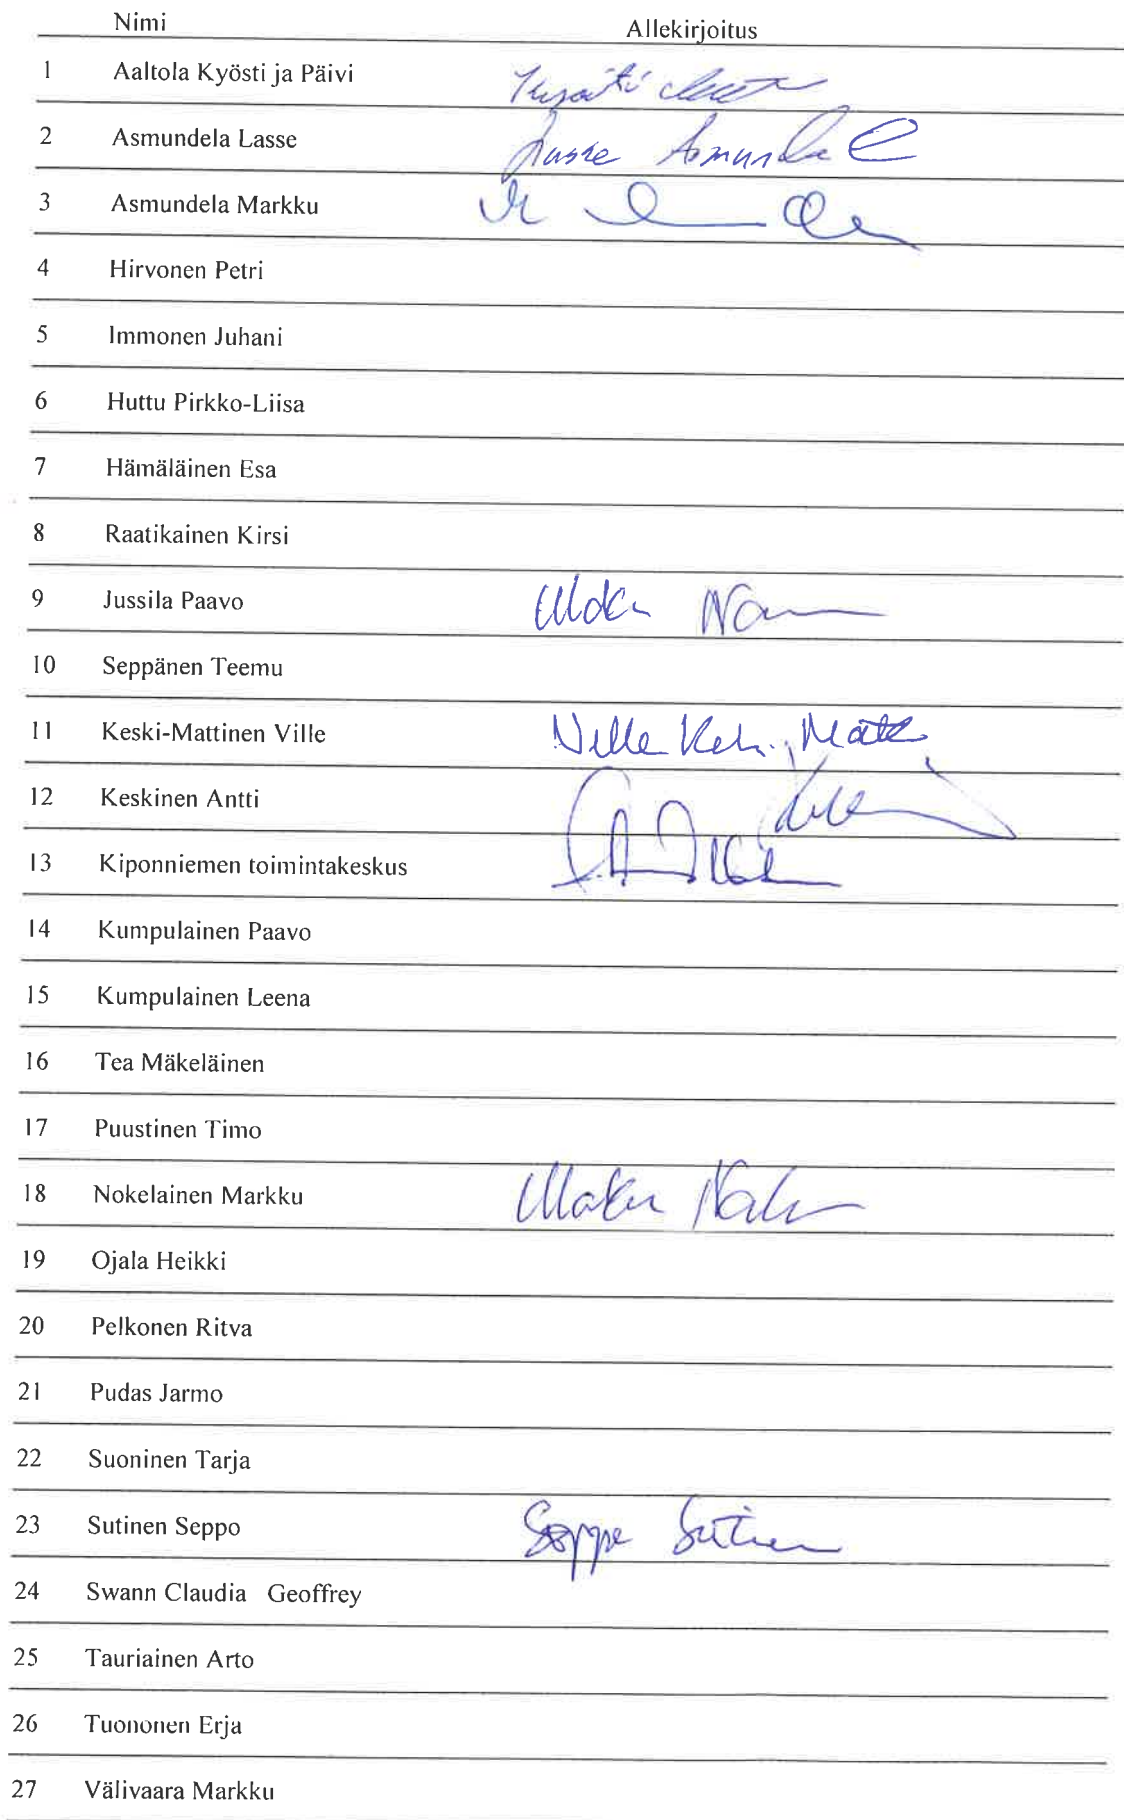 Nimi Allekirjoitus
1 Aaltola Kyösti ja Päivi
2 Asmundela Lasse Lasse Asmundela
3 Asmundela Markku
4 Hirvonen Petri
5 Immonen Juhani
6 Huttu Pirkko-Liisa
7 Hämäläinen Esa
8 Raatikainen Kirsi
9 Jussila Paavo
10 Seppänen Teemu
11 Keski-Mattinen Ville Ville
12 Keskinen Antti
13 Kiponniemen toimintakeskus
14 Kumpulainen Paavo
15 Kumpulainen Leena
16 Tea Mäkeläinen
17 Puustinen Timo
18 Nokelainen Markku
19 Ojala Heikki
20 Pelkonen Ritva
21 Pudas Jarmo
22 Suoninen Tarja
23 Sutinen Seppo Seppo Sutinen
24 Swann Claudia Geoffrey
25 Tauriainen Arto
26 Tuononen Erja
27 Välivaara Markku